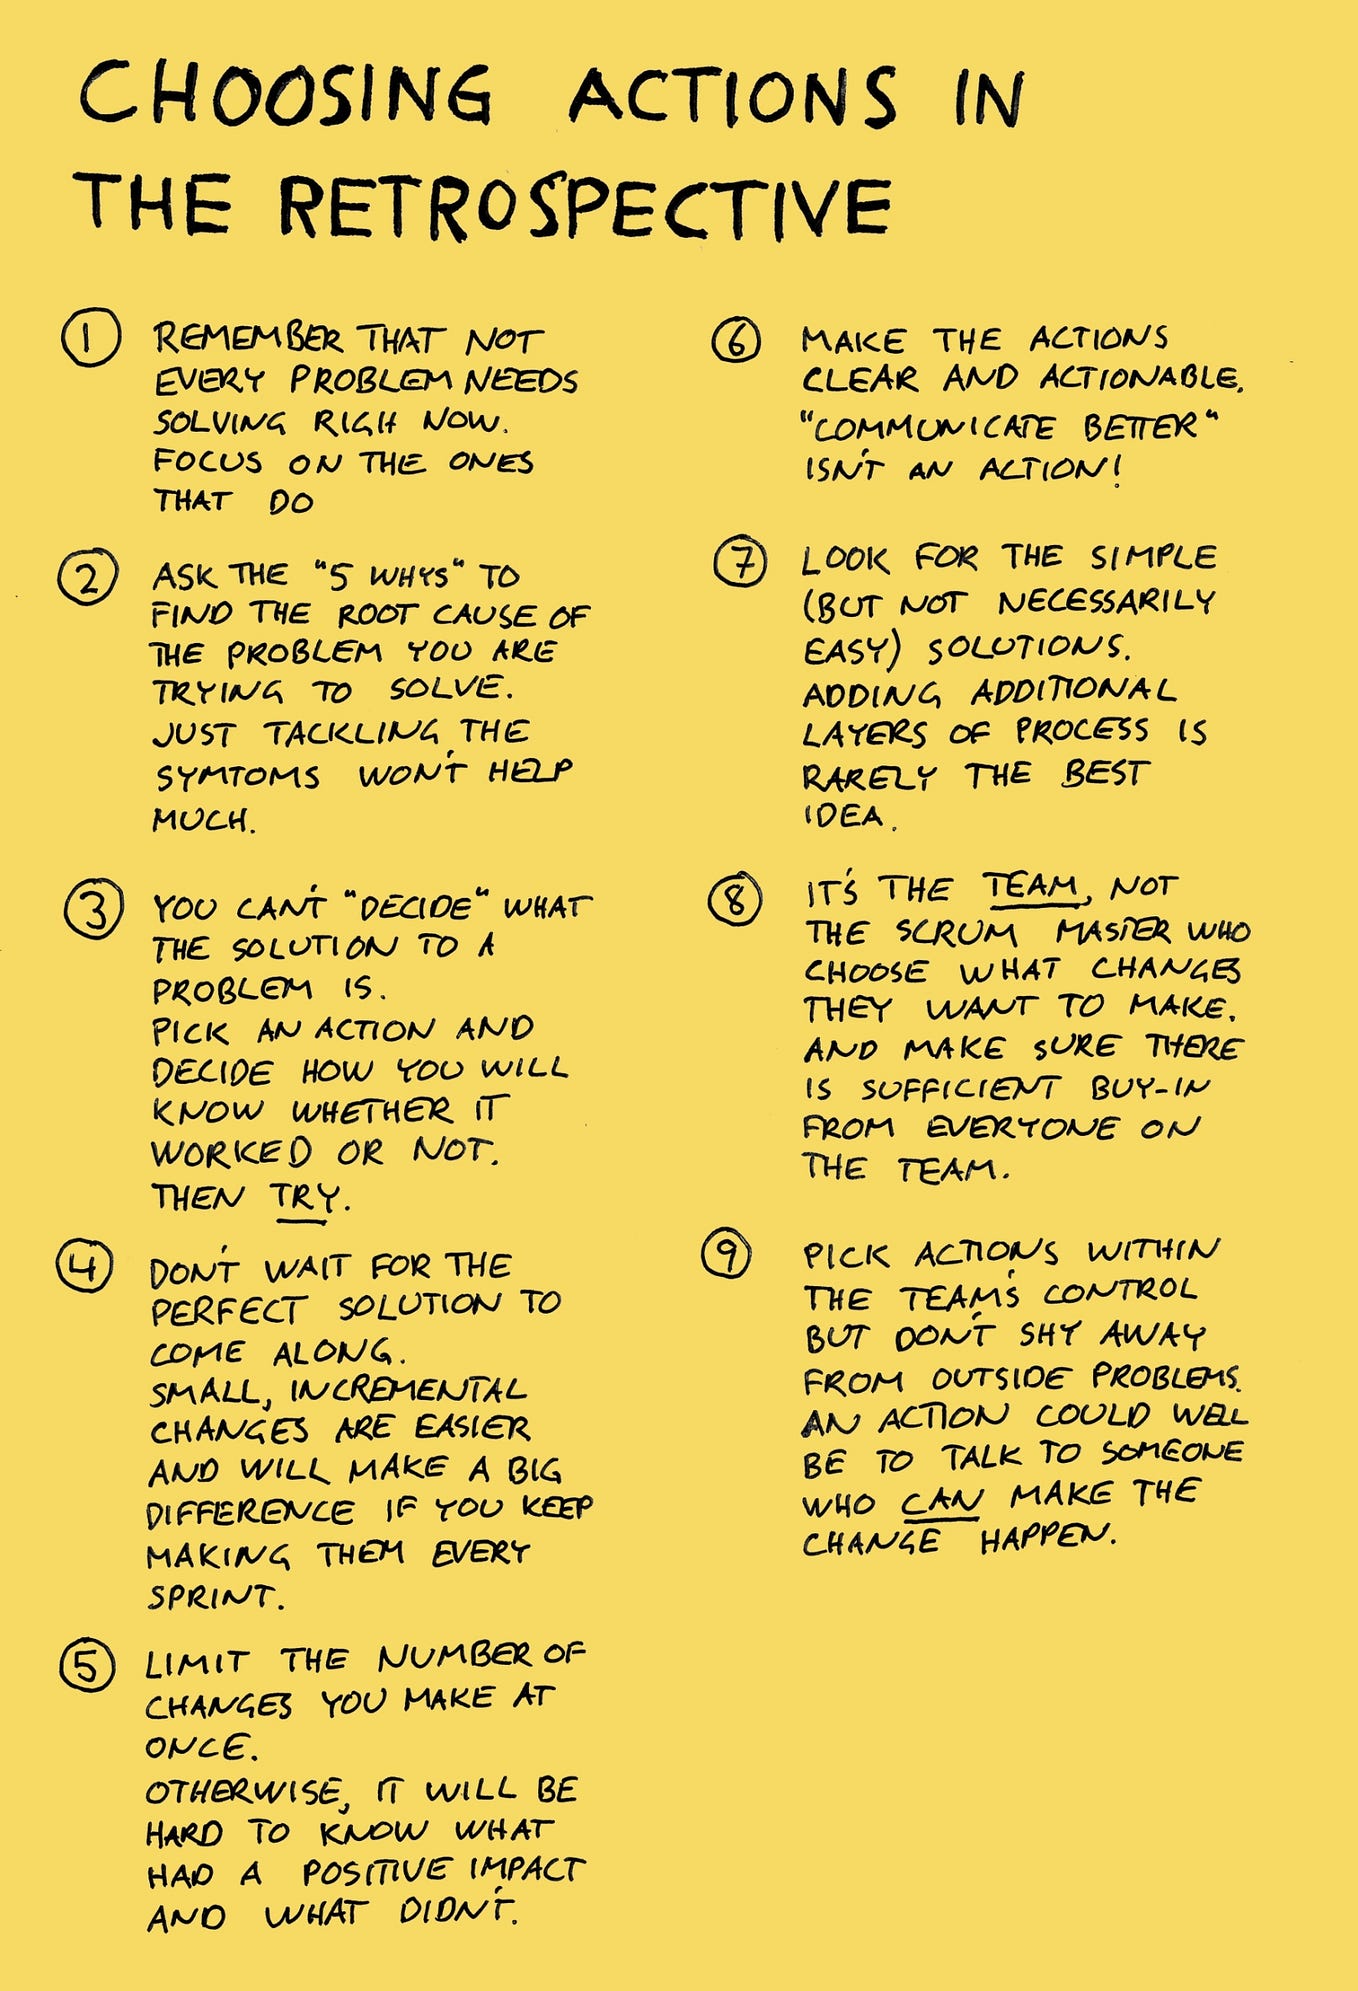 CHOOSING ACTIONS IN
THE RETROSPECTIVE
1
REMEMBER THAT NOT
EVERY PROBLEM NEEDS
SOLVING RIGH NOW.
FOCUS ON THE ONES
THAT DO
2
ASK THE "5 WHYS" TO
FIND THE ROOT CAUSE OF
THE PROBLEM YOU ARE
TRYING TO SOLVE.
JUST TACKLING THE
SYMTOMS WON'T HELP
MUCH.
3
YOU CAN'T "DECIDE" WHAT
THE SOLUTION TO A
PROBLEM IS.
PICK AN ACTION AND
DECIDE HOW YOU WILL
KNOW WHETHER IT
WORKED OR NOT.
THEN TRY.
4
DON'T WAIT FOR THE
PERFECT SOLUTION TO
COME ALONG.
SMALL, INCREMENTAL
CHANGES ARE EASIER
AND WILL MAKE A BIG
DIFFERENCE IF YOU KEEP
MAKING THEM EVERY
SPRINT.
5
LIMIT THE NUMBER OF
CHANGES YOU MAKE AT
ONCE.
OTHERWISE, IT WILL BE
HARD TO KNOW WHAT
HAD A POSITIVE IMPACT
AND WHAT DIDN'T.
6
MAKE THE ACTIONS
CLEAR AND ACTIONABLE.
"COMMUNICATE BETTER"
ISN'T AN ACTION!
7
LOOK FOR THE SIMPLE
(BUT NOT NECESSARILY
EASY) SOLUTIONS.
ADDING ADDITIONAL
LAYERS OF PROCESS IS
RARELY THE BEST
IDEA.
8
IT'S THE TEAM, NOT
THE SCRUM MASTER WHO
CHOOSE WHAT CHANGES
THEY WANT TO MAKE.
AND MAKE SURE THERE
IS SUFFICIENT BUY-IN
FROM EVERYONE ON
THE TEAM.
9
PICK ACTIONS WITHIN
THE TEAM'S CONTROL
BUT DON'T SHY AWAY
FROM OUTSIDE PROBLEMS.
AN ACTION COULD WELL
BE TO TALK TO SOMEONE
WHO CAN MAKE THE
CHANGE HAPPEN.